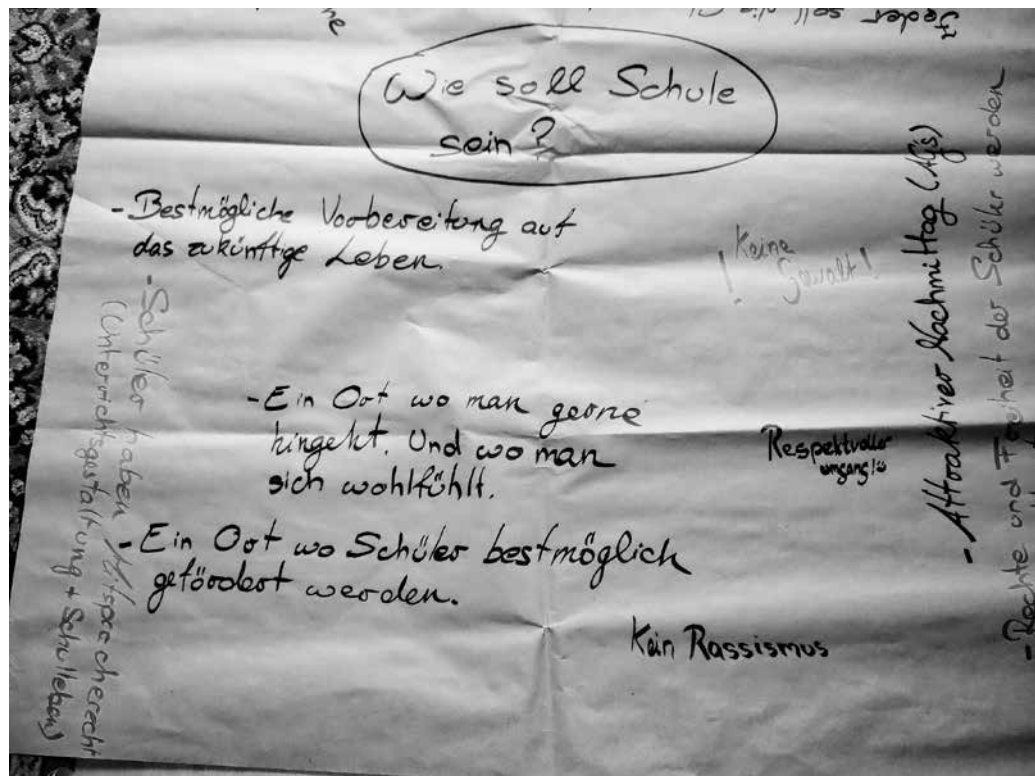 Jeder soll die
Wie soll Schule
sein?
- Bestmögliche Vorbereitung auf
das zukünftige Leben.
! Keine
Gewalt!
- Ein Ort wo man gerne
hingeht. Und wo man
sich wohlfühlt.
Respektvoller
umgang!
- Ein Ort wo Schüler bestmöglich
gefördert werden.
Kein Rassismus
- Schüler haben Mitspracherecht
(Unterrichtsgestaltung + Schulleben)
- Attraktiver Nachmittag (AGs)
- Rechte und Freiheit der Schüler werden